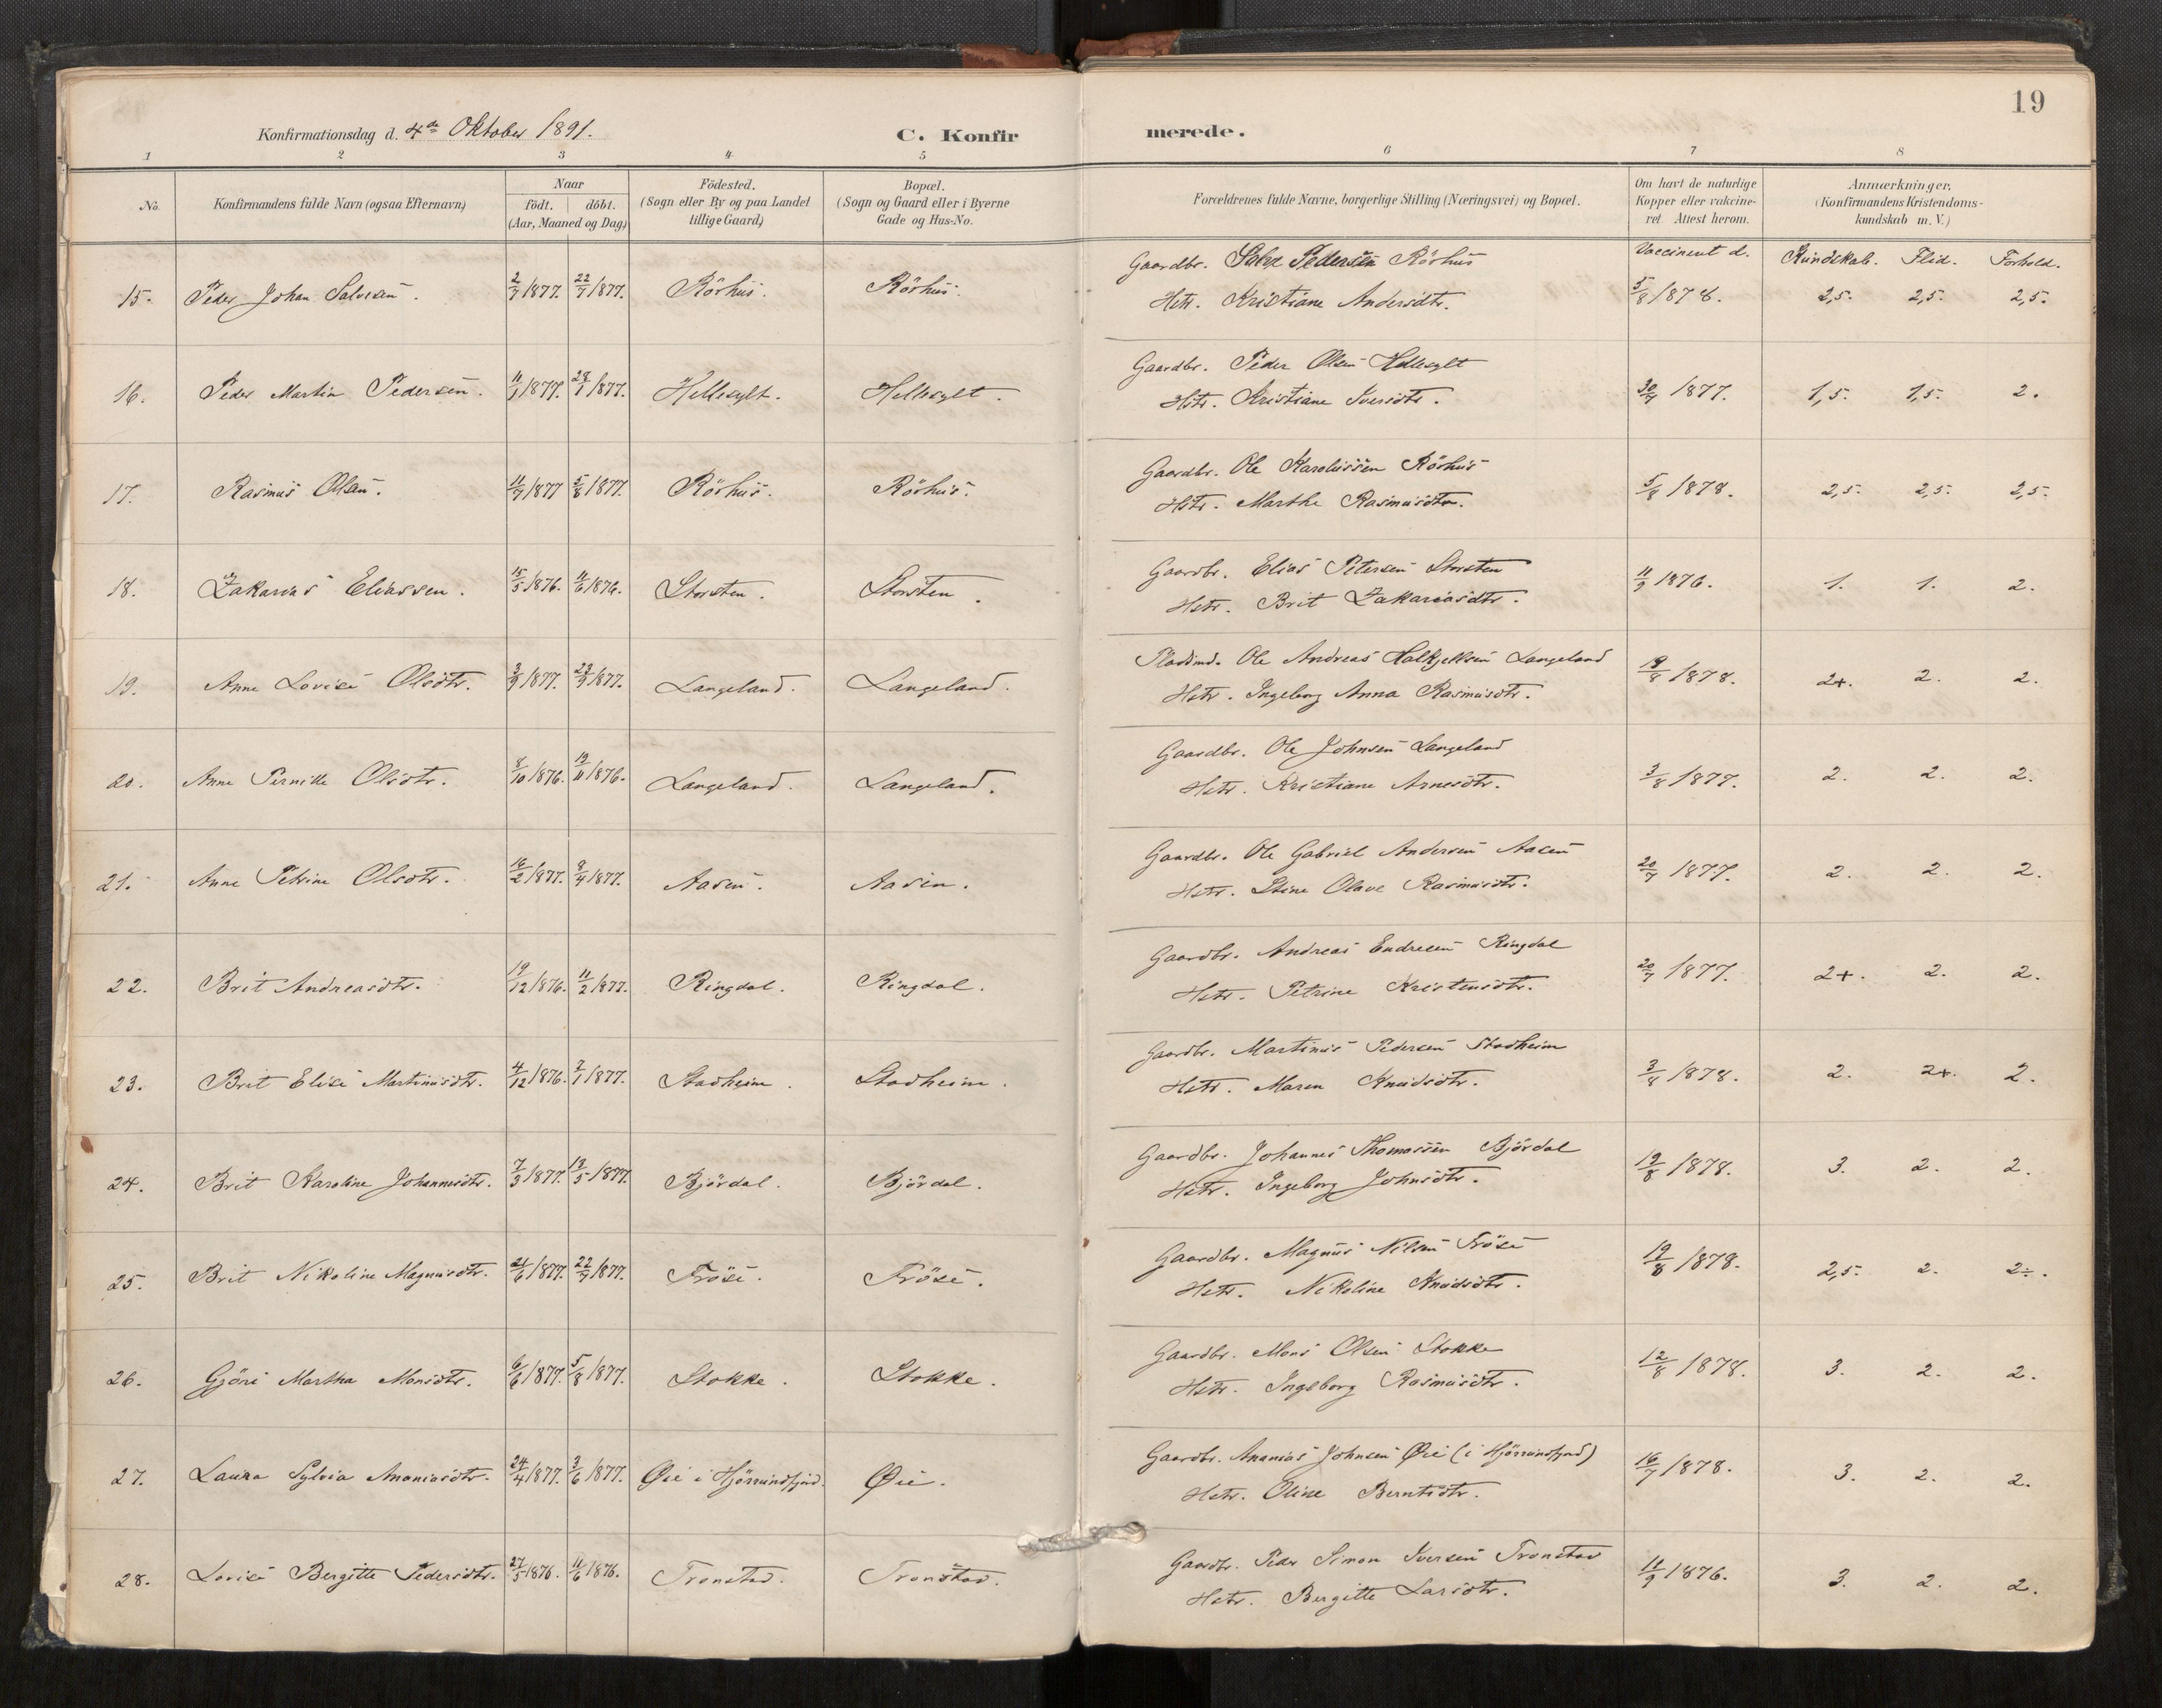 19
Konfirmationsdag d. 4de Oktober 1891. C. Konfirmerede.
1 2 3 4 5 6 7 8
No. Konfirmandens fulde Navn (ogsaa Efternavn) Naar födt. döbt. (Aar, Maaned og Dag) Födested. (Sogn eller By og paa Landet tillige Gaard) Bopæl. (Sogn og Gaard eller i Byerne Gade og Hus-No. Forældrenes fulde Navne, borgerlige Stilling (Næringsvei) og Bopæl. Om havt de naturlige Kopper eller vakcineret. Attest herom. Anmærkninger. (Konfirmandens Kristendomskundskab m. V.)
Vaccineret d. Kundskab. Flid. Forhold.
15. Peder Johan Salvesen. 2/7 1877. 22/7 1877. Rörhus. Rörhus. Gaardbr. Salve Pedersen Rörhus
Hstr. Kristiane Andersdtr. 5/8 1878. 2,5. 2,5. 2,5.
16. Peder Martin Pedersen. 11/1 1877. 28/1 1877. Hellesylt. Hellesylt. Gaardbr. Peder Olsen Hellesylt
Hstr. Kristiane Iversdtr. 30/7 1877. 1,5. 1,5. 2.
17. Rasmus Olsen. 11/7 1877 5/8 1877. Rörhus. Rörhus. Gaardbr. Ole Karolussen Rörhus
Hstr. Marthe Rasmusdtr. 5/8 1878. 2,5. 2,5. 2,5.
18. Zakarias Eliassen. 15/5 1876. 11/6 1876. Storsten. Storsten. Gaardbr. Elias Petersen Storsten
Hstr. Brit Zakariasdtr. 11/9 1876. 1. 1. 2.
19. Anne Lovise Olsdtr. 3/9 1877. 23/9 1877. Langeland. Langeland. Pladsmd. Ole Andreas Halkjelsen Langeland
Hstr. Ingeborg Anna Rasmusdtr. /8 1878. 2+. 2. 2.
20. Anne Pernille Olsdtr. 8/10 1876. 19/11 1876. Langeland. Langeland. Gaardbr. Ole Johnsen Langeland
Hstr. Kristiane Arnesdtr. 3/8 1877. 2. 2. 2.
21. Anne Petrine Olsdtr. /2 1877. /4 1877. Aasen. Aasen. Gaardbr. Ole Gabriel Andersen Aasen
Hstr. Stine Olave Rasmusdtr. 20/7 1877. 2. 2. 2.
22. Brit Andreasdtr. 19/12 1876. 11/2 1877. Ringdal. Ringdal. Gaardbr. Andreas Endresen Ringdal
Hstr. Petrine Kristensdtr. 20/7 1877. 2+. 2. 2.
23. Brit Elise Martinusdtr. 4/12 1876. 7/1 1877. Stadheim. Stadheim. Gaardbr. Martinus Pedersen Stadheim
Hstr. Maren Knudsdtr. 3/8 1878. 2. 2+. 2.
24. Brit Karoline Johannesdtr. 7/3 1877. 13/5 1877. Björdal. Björdal. Gaardbr. Johannes Thomassen Björdal
Hstr. Ingeborg Johnsdtr. 19/8 1878. 3. 2. 2.
25. Brit Nikoline Magnusdtr. 21/6 1877. 22/7 1877. Fröse. Fröse. Gaardbr. Magnus Nilsen Fröse
Hstr. Nikoline Knudsdtr. 19/8 1878. 2,5. 2. 2÷.
26. Gjöri Martha Monsdtr. 6/6 1877. 5/8 1877. Stokke. Stokke. Gaardbr. Mons Olsen Stokke
Hstr. Ingeborg Rasmusdtr. 12/8 1878. 3. 2. 2.
27. Laura Sylvia Ananiasdtr. 24/4 1877. 3/6 1877. Øie i Hjörrundfjord. Øie. Gaardbr. Ananias Johnsen Øie (i Hjörrundfjord)
Hstr. Oline Berntsdtr. 16/7 1878. 3. 2. 2.
28. Lovise Bergitte Pedersdtr. 27/5 1876. 11/6 1876. Tronstad. Tronstad. Gaardbr. Peder Simon Iversen Tronstad
Hstr. Bergitte Larsdtr. 11/9 1876. 3. 2. 2.